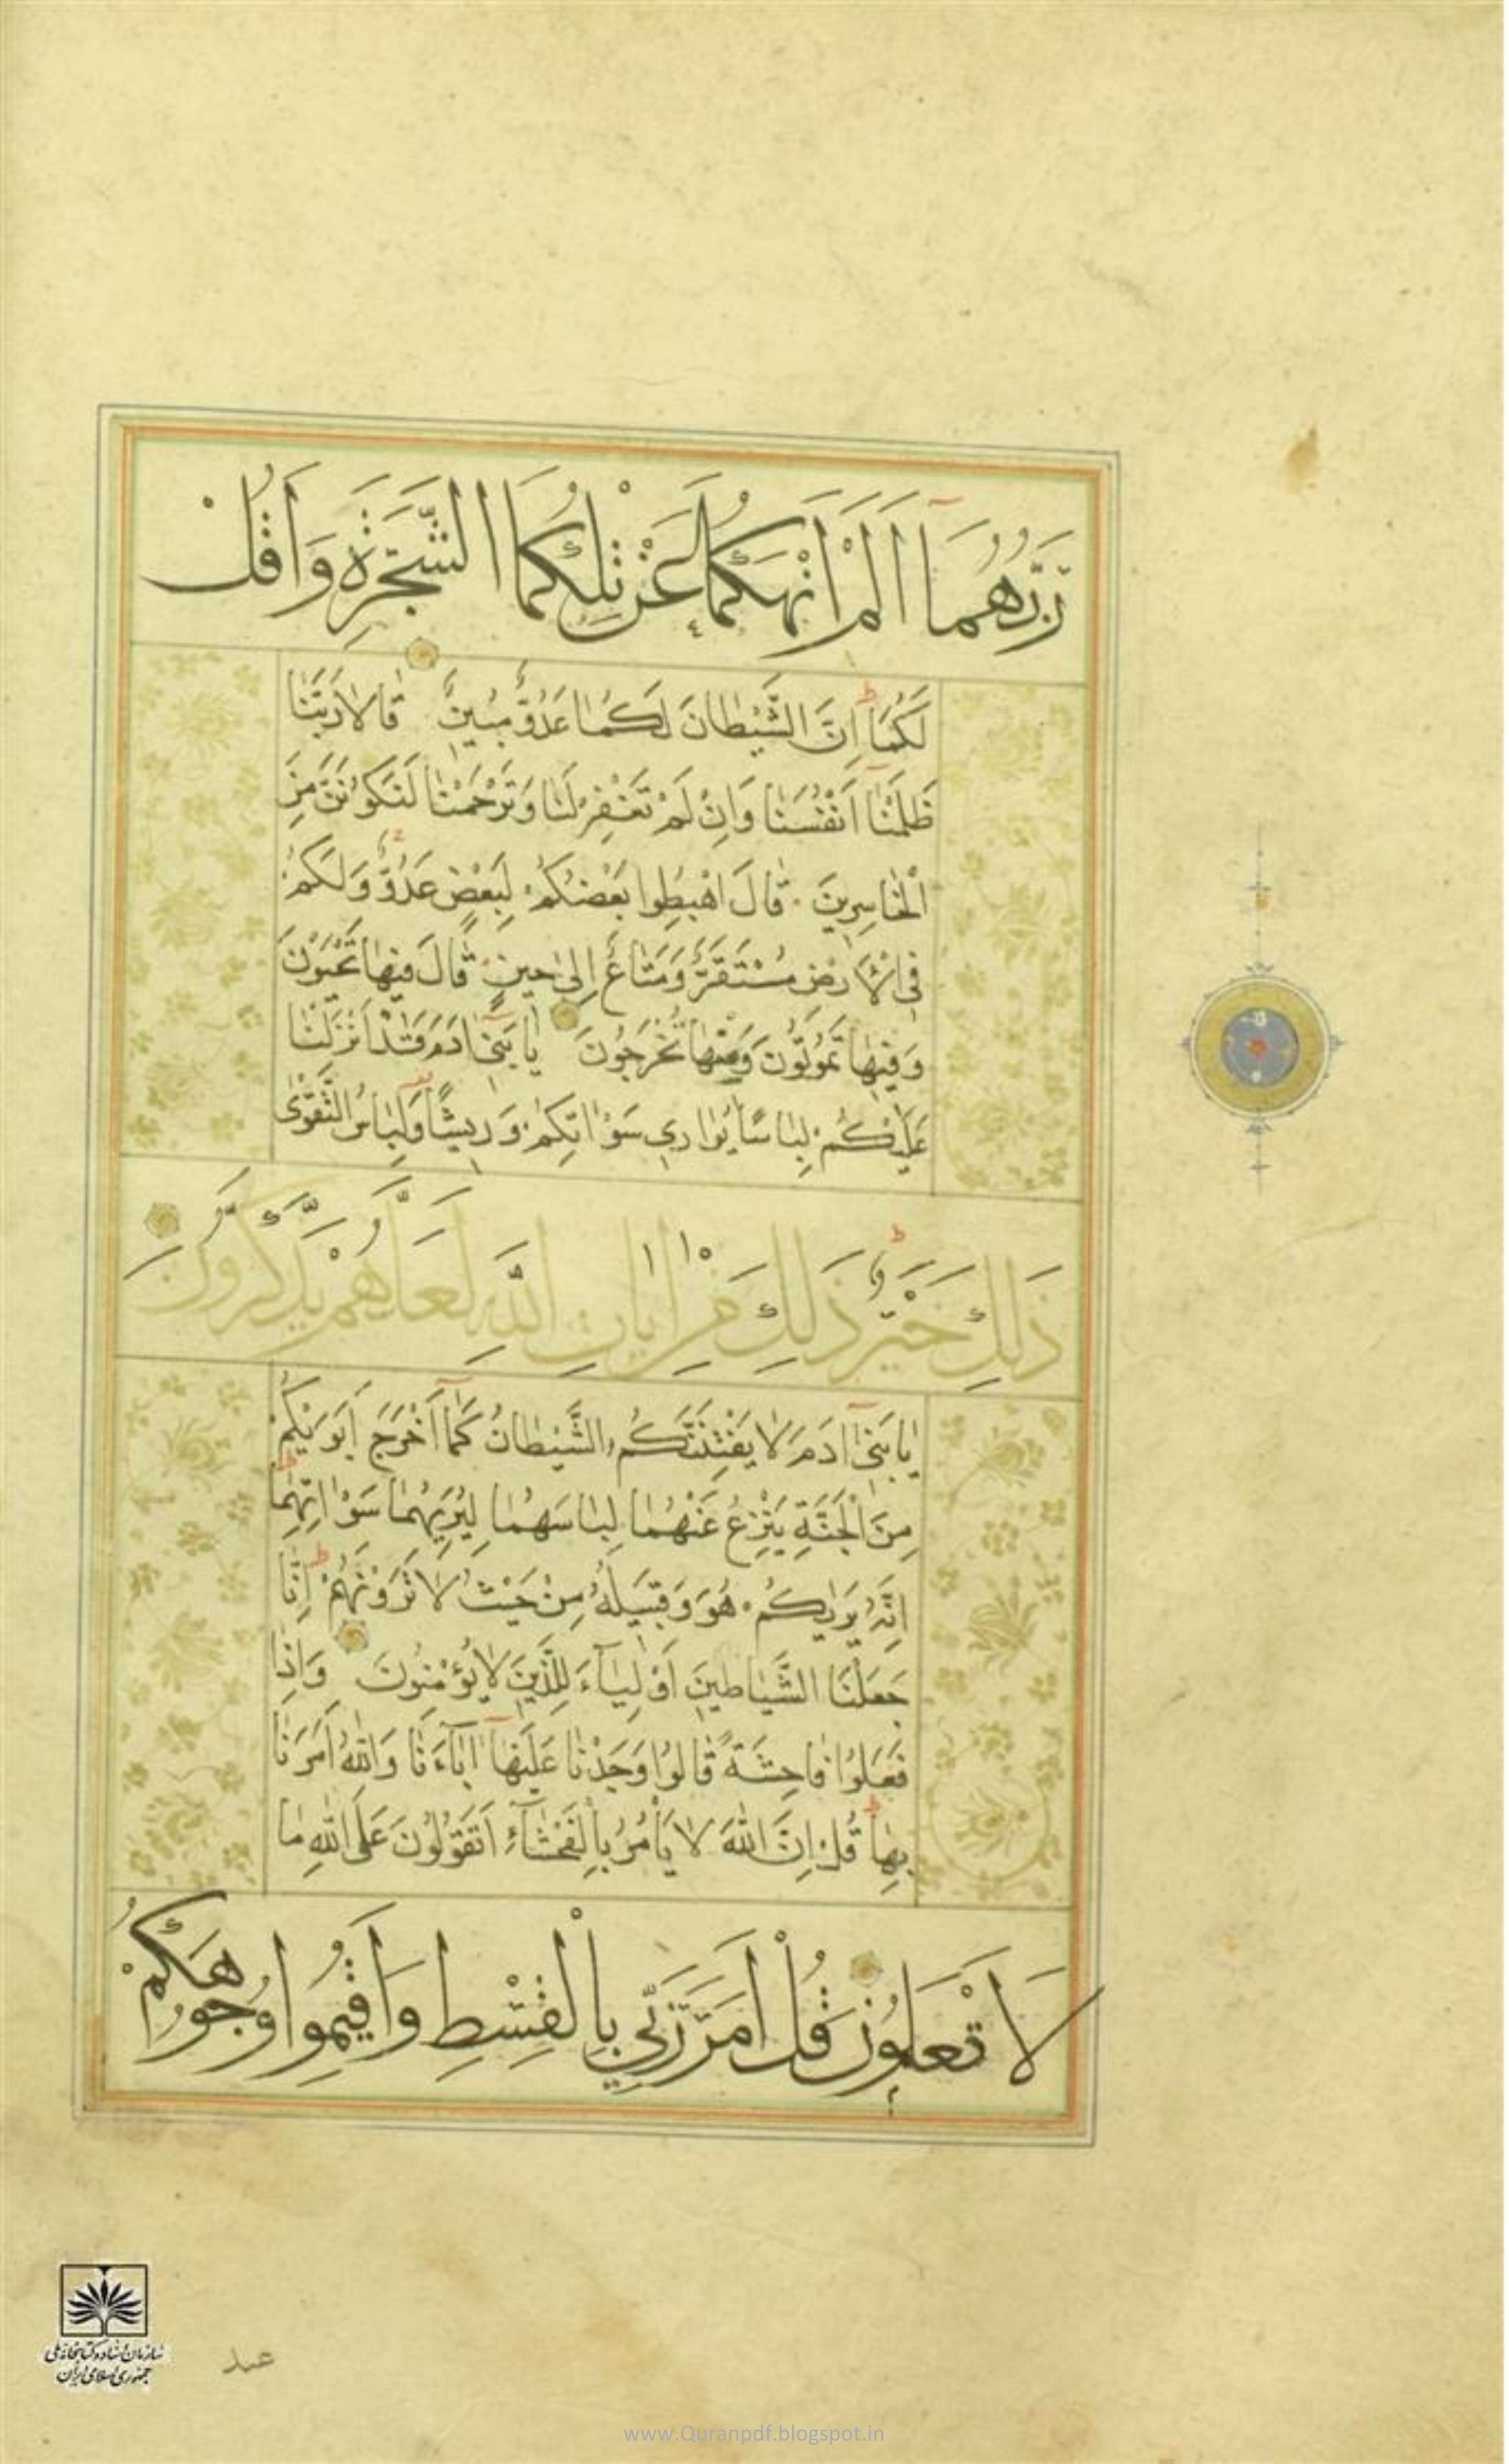 رَبُّهُمَا اَلَمْ اَنْهَكُمَا عَنْ تِلْكُمَا الشَّجَرَةِ وَاَقُلْ
لَكُمَا اِنَّ الشَّيْطَانَ لَكُمَا عَدُوٌّ مُبِينٌ قَالَا رَبَّنَا
ظَلَمْنَا اَنْفُسَنَا وَاِنْ لَمْ تَغْفِرْ لَنَا وَتَرْحَمْنَا لَنَكُونَنَّ مِنَ
الْخَاسِرِينَ قَالَ اهْبِطُوا بَعْضُكُمْ لِبَعْضٍ عَدُوٌّ وَلَكُمْ
فِي الْاَرْضِ مُسْتَقَرٌّ وَمَتَاعٌ اِلَى حِينٍ قَالَ فِيهَا تَحْيَوْنَ
وَفِيهَا تَمُوتُونَ وَمِنْهَا تُخْرَجُونَ يَا بَنِي اٰدَمَ قَدْ اَنْزَلْنَا
عَلَيْكُمْ لِبَاسًا يُوَارِي سَوْاٰتِكُمْ وَرِيشًا وَلِبَاسُ التَّقْوَى
ذَلِكَ خَيْرٌ ذَلِكَ مِنْ اٰيَاتِ اللَّهِ لَعَلَّهُمْ يَذَّكَّرُونَ
يَا بَنِي اٰدَمَ لَا يَفْتِنَنَّكُمُ الشَّيْطَانُ كَمَا اَخْرَجَ اَبَوَيْكُمْ
مِنَ الْجَنَّةِ يَنْزِعُ عَنْهُمَا لِبَاسَهُمَا لِيُرِيَهُمَا سَوْاٰتِهِمَا
اِنَّهُ يَرَيٰكُمْ هُوَ وَقَبِيلُهُ مِنْ حَيْثُ لَا تَرَوْنَهُمْ اِنَّا
جَعَلْنَا الشَّيَاطِينَ اَوْلِيَاءَ لِلَّذِينَ لَا يُؤْمِنُونَ وَاِذَا
فَعَلُوا فَاحِشَةً قَالُوا وَجَدْنَا عَلَيْهَا اٰبَاءَنَا وَاللَّهُ اَمَرَنَا
بِهَا قُلْ اِنَّ اللَّهَ لَا يَأْمُرُ بِالْفَحْشَاءِ اَتَقُولُونَ عَلَى اللَّهِ مَا
لَا تَعْلَمُونَ قُلْ اَمَرَ رَبِّي بِالْقِسْطِ وَاَقِيمُوا وُجُوهَكُمْ
سازمان اسناد و کتابخانه ملی
جمهوری اسلامی ایران
عند
www.Quranpdf.blogspot.in